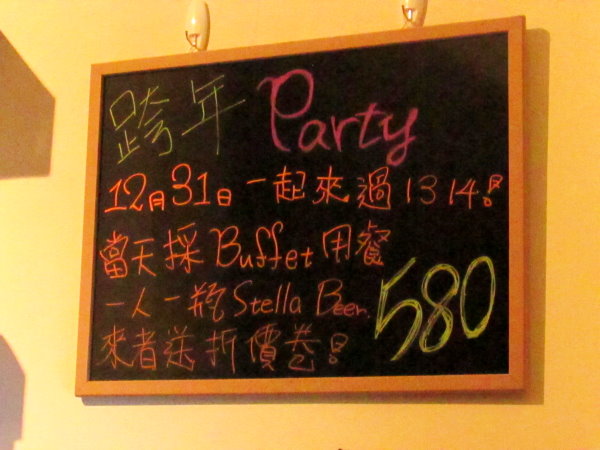 跨年 Party
12月31日一起來過1314!
當天採Buffet用餐
一人一瓶Stella Beer. 580
來者送折價卷!